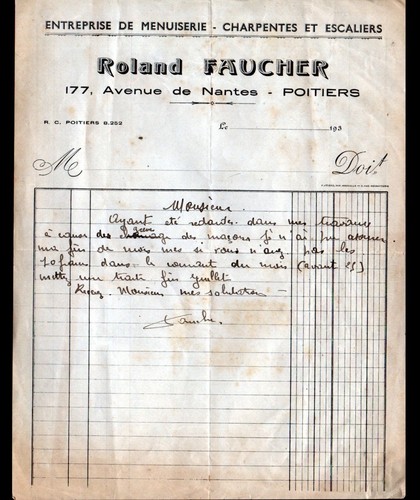 ENTREPRISE DE MENUISERIE - CHARPENTES ET ESCALIERS
Roland FAUCHER
177, Avenue de Nantes - POITIERS
R. C. POITIERS B.252
Le 193
M Doit
Monsieur
Ayant été retarder dans mes travaux
à cause des grève des maçons je n'ai pu
ma fin de mois mes si vous n'avez pas les
70 francs dans le courant du mois (avant 25)
mettez une traite fin juillet
Recevez Monsieur mes salutation
Faucher